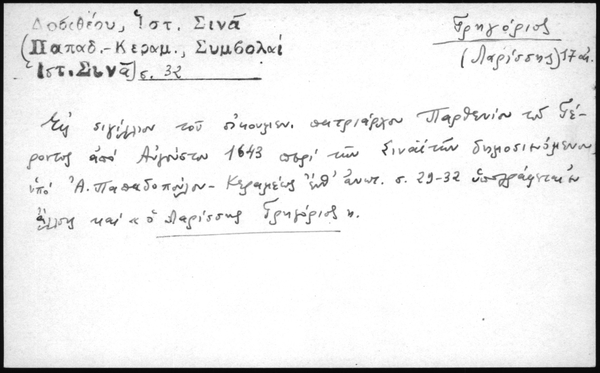 Δοσιθέου, Ἱστ. Σινᾶ
(Παπαδ.-Κεραμ., Συμβολαί
Ἱστ. Σινᾶ) σ. 32
Γρηγόριος
(Λαρίσσης) 17 αἰ.
Εἰς σιγίλλιον τοῦ οἰκουμεν. πατριάρχου Παρθενίου τοῦ Γέ-
ροντος ἀπό Αὐγούστου 1643 περί τῶν Σιναϊτῶν δημοσιευόμενον
ὑπό Ἀ. Παπαδοπούλου-Κεραμέως ἔνθ' ἀνωτ. σ. 29-32 ὑπογράφεται ἐν
ἄλλοις καί « ὁ Λαρίσσης Γρηγόριος ».